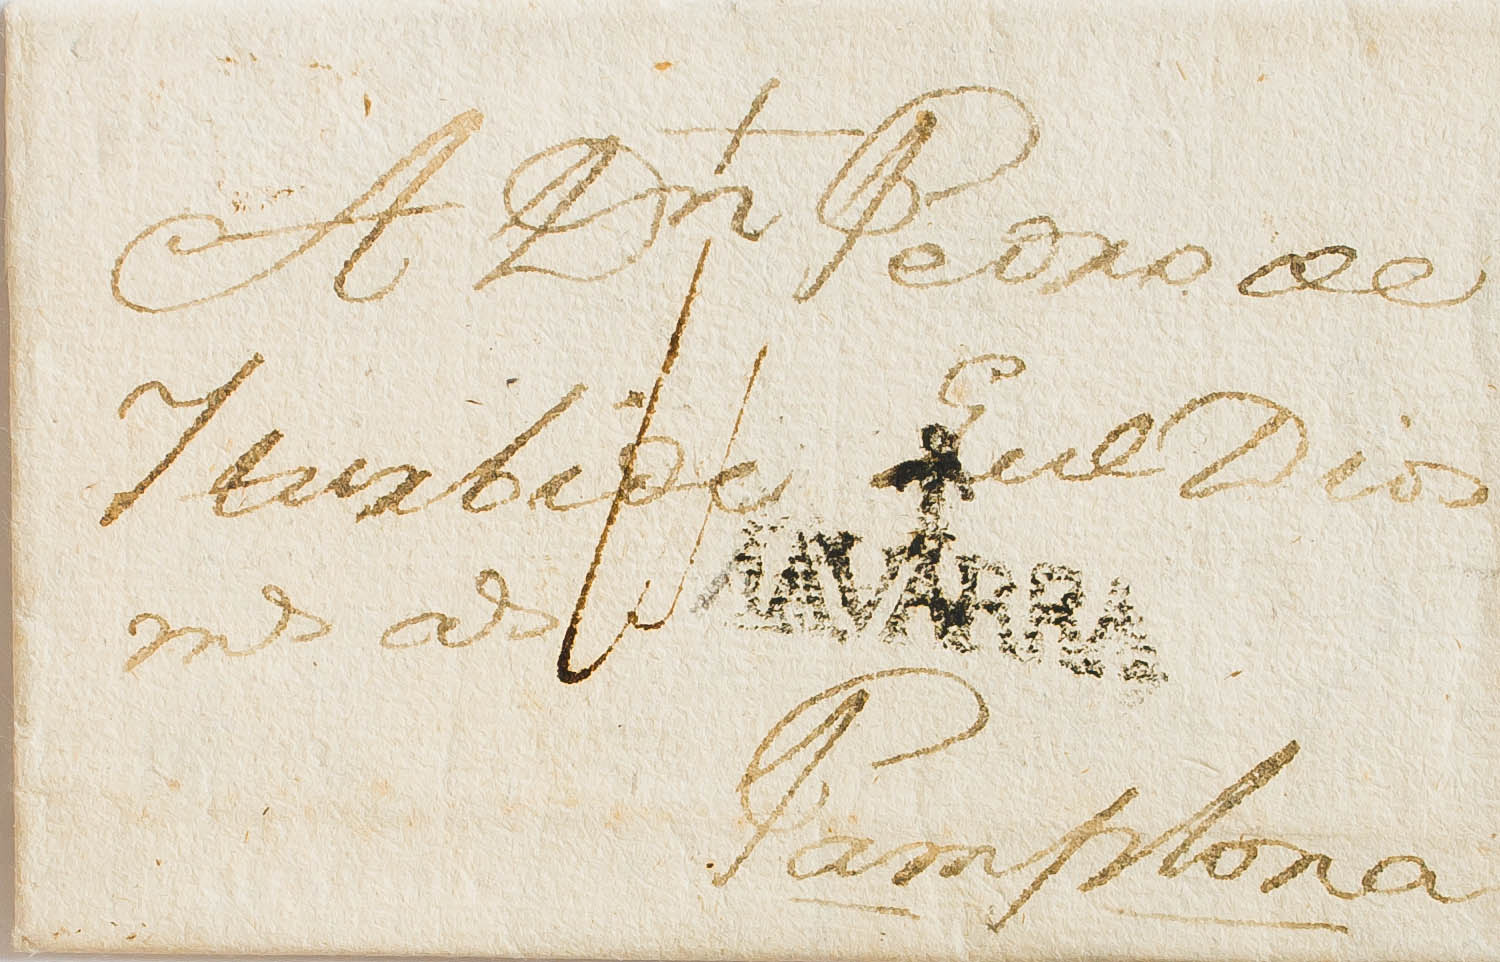 A Dn Pedro de
Iturbide Gue Dios
ms as
NAVARRA
Pamplona